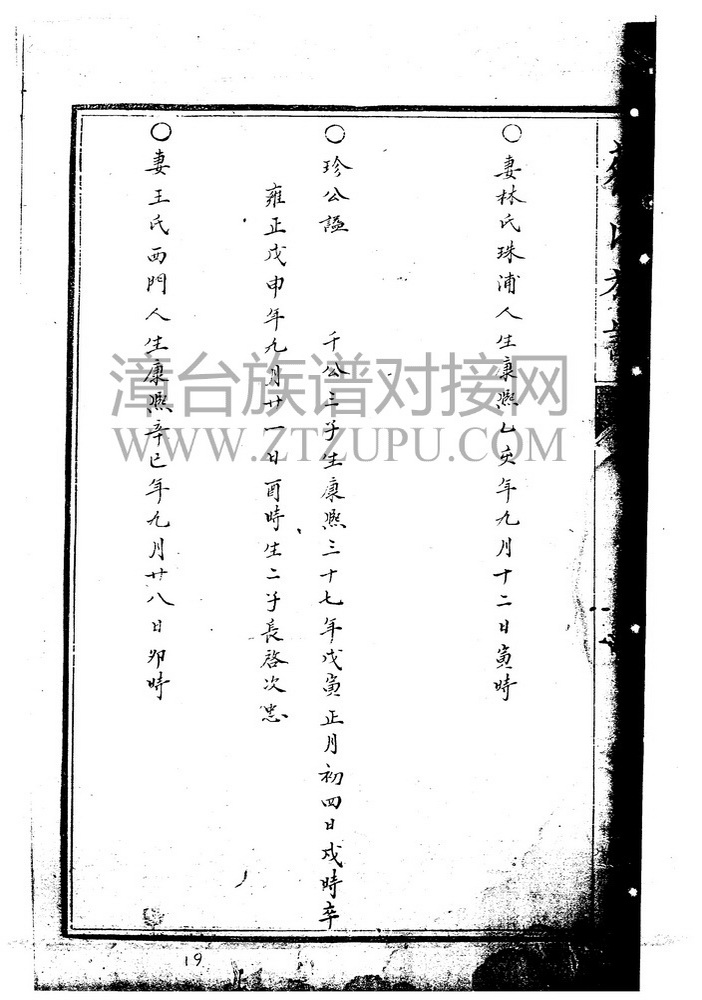 ○妻林氏珠浦人生康熙乙亥年九月十二日寅時
○珍公謚 千公三子生康熙三十七年戊寅正月初四日戌時卒
雍正戊申年九月廿一日酉時生二子長啓次忠
○妻王氏西門人生康熙辛巳年九月廿八日卯時
漳台族谱对接网
WWW.ZTZUPU.COM
19